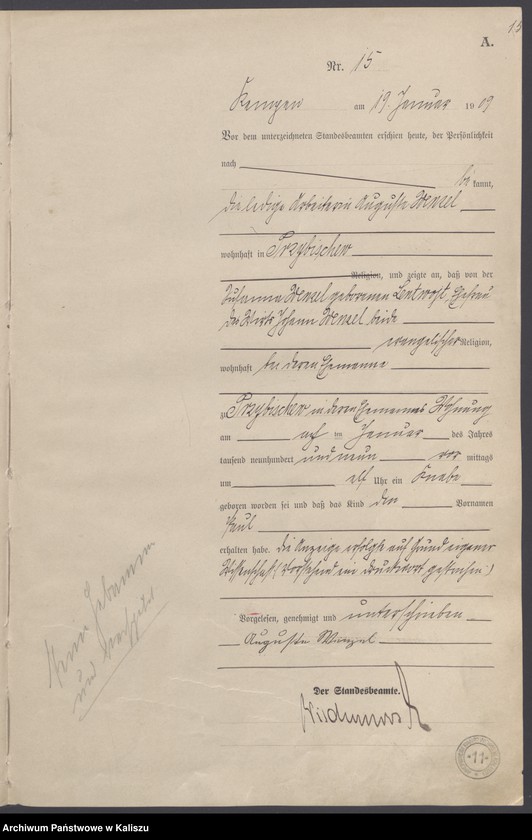 15
A.
Nr. 15
Kempen am 19. Januar 1909
Vor dem unterzeichneten Standesbeamten erschien heute, der Persönlichkeit
nach
be kannt,
die ledige Arbeiterin Auguste Wenzel
wohnhaft in Przybischew
Religion, und zeigte an, daß von der
Susanna Wenzel geborenen Ehefrau
des Wirts Johann Wenzel beide
evangelischer Religion,
wohnhaft bei deren Ehemanne
zu Przybischew in deren Ehemannes Wohnung
am acht ten Januar des Jahres
tausend neunhundert und neun vor mittags
um elf Uhr ein Knabe
geboren worden sei und daß das Kind den Vornamen
Paul
erhalten habe. Die Anzeige erfolgte auf Grund eigener
Wissenschaft (Vorstehend ein Druckwort gestrichen.)
Vorgelesen, genehmigt und unterschrieben
Auguste Winzel
Der Standesbeamte.
11
Archiwum Państwowe w Kaliszu